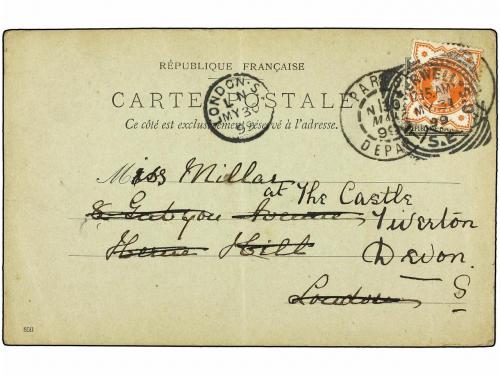 RÉPUBLIQUE FRANÇAISE
CARTE POSTALE
Ce côté est exclusivement réservé à l'adresse.
LONDON.S.
MY 30
99
PAR
DEPA
99
MY
99
S.E
Miss Millar
at The Castle
Avenue Tiverton
Herne Hill Devon
London S